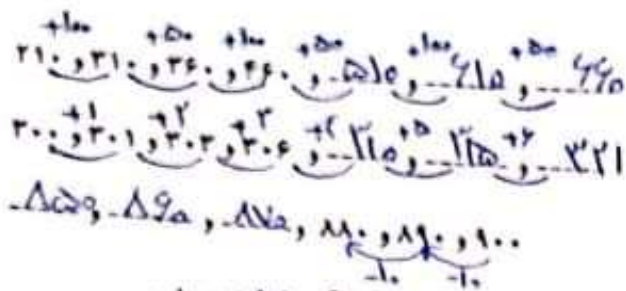 +۱۰۰ +۵۰ +۱۰۰ +۵۰ +۱۰۰ +۵۰
۲۱۰ , ۳۱۰ , ۳۶۰ , ۴۶۰ , ۵۱۰ , ۶۱۰ , ۶۶۰
+۱ +۲ +۳ +۴ +۵ +۶
۳۰۰ , ۳۰۱ , ۳۰۳ , ۳۰۶ , ۳۱۰ , ۳۱۵ , ۳۲۱
۸۵۰ , ۸۶۰ , ۸۷۰ , ۸۸۰ , ۸۹۰ , ۹۰۰
-۱۰ -۱۰